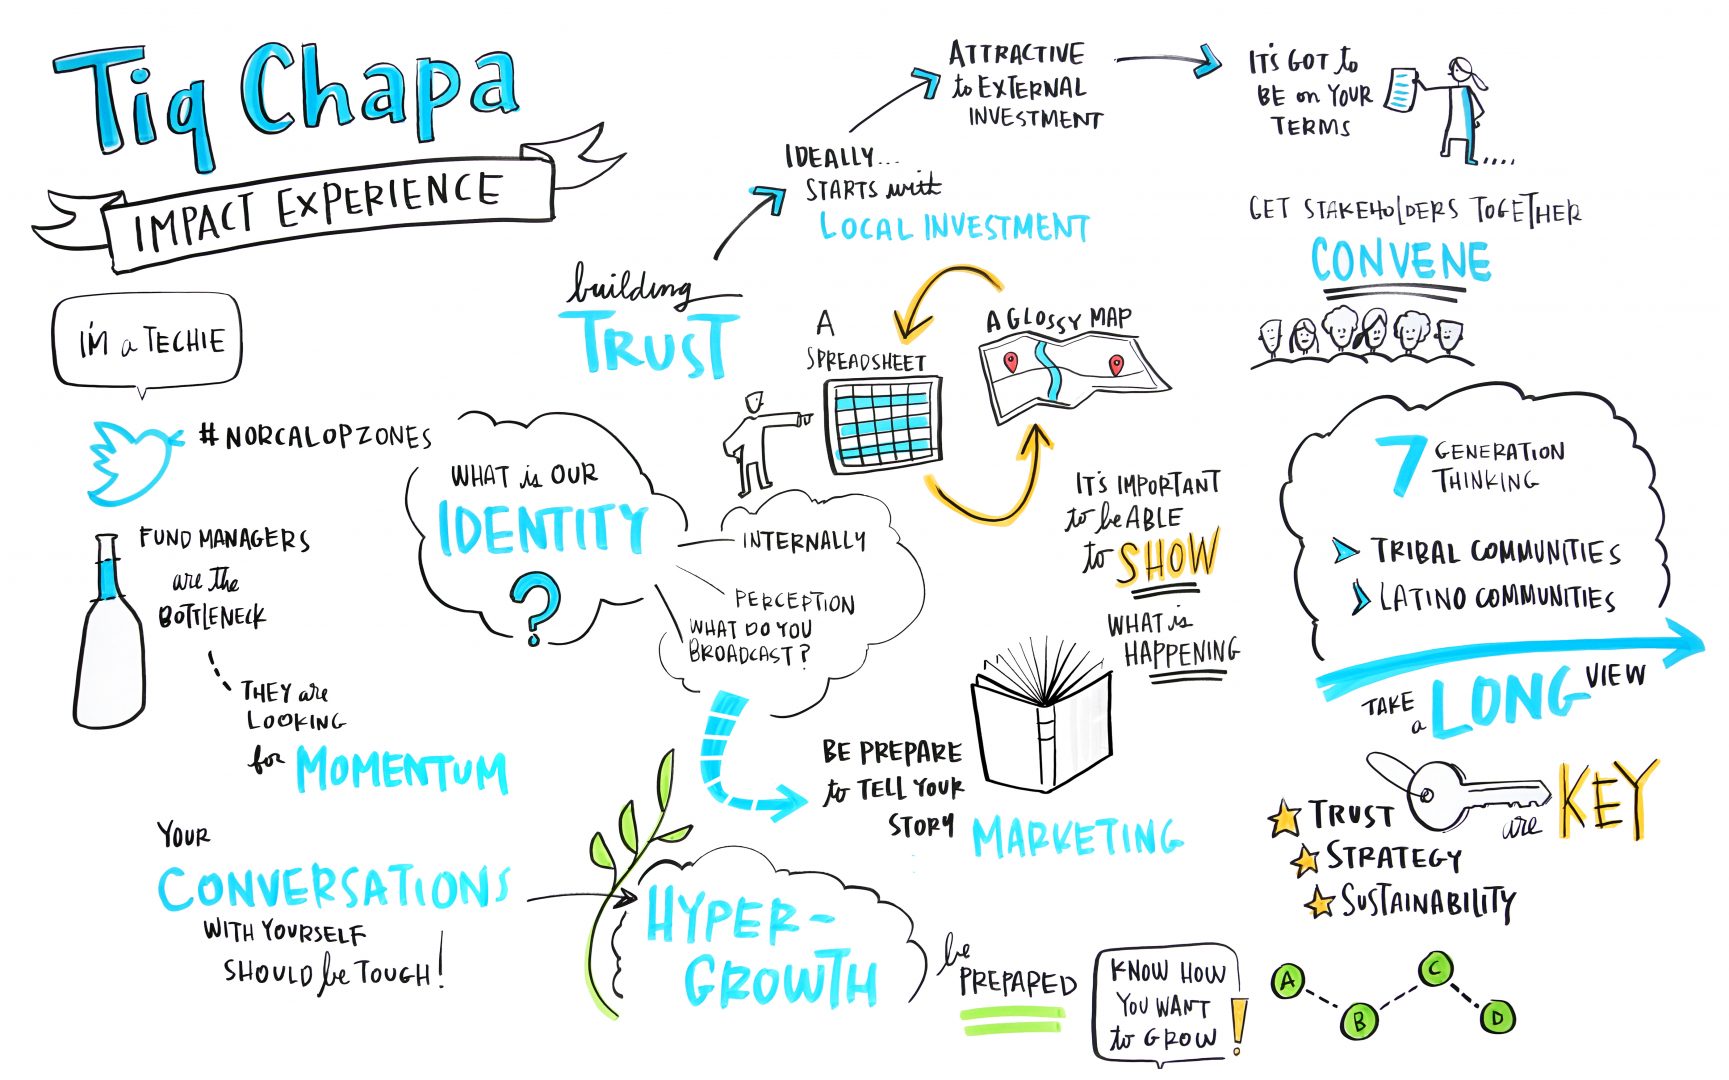 Tiq Chapa
IMPACT EXPERIENCE
I'M a TECHIE
#NORCALOPZONES
FUND MANAGERS
are the
BOTTLENECK
THEY are
LOOKING
for MOMENTUM
YOUR
CONVERSATIONS
WITH YOURSELF
SHOULD be TOUGH!
building
TRUST
IDEALLY...
STARTS with
LOCAL INVESTMENT
ATTRACTIVE
to EXTERNAL
INVESTMENT
IT'S GOT to
BE on YOUR
TERMS
GET STAKEHOLDERS TOGETHER
CONVENE
A
SPREADSHEET
A GLOSSY MAP
WHAT is OUR
IDENTITY
?
INTERNALLY
PERCEPTION
WHAT DO YOU
BROADCAST?
IT'S IMPORTANT
to be ABLE
to SHOW
WHAT is
HAPPENING
BE PREPARE
to TELL YOUR
STORY
MARKETING
7 GENERATION
THINKING
TRIBAL COMMUNITIES
LATINO COMMUNITIES
TAKE
a LONG VIEW
TRUST
STRATEGY
SUSTAINABILITY
are KEY
HYPER-
GROWTH
be
PREPARED
KNOW HOW
YOU WANT
to GROW!
A
B
C
D